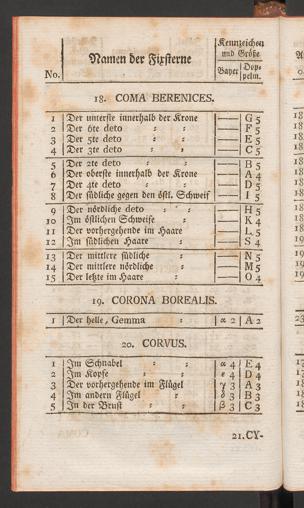 No. Namen der Fixsterne Kennzeichen und Größe
Bayer Doppelm.
18. COMA BERENICES.
1 Der unterste innerhalb der Krone — G 5
2 Der 6te deto : : — F 5
3 Der 5te deto : : — E 5
4 Der 3te deto : : — C 5
5 Der 2te deto : : — B 5
6 Der oberste innerhalb der Krone — A 4
7 Der 4te deto : : — D 5
8 Der südliche gegen den östl. Schweif — I 5
9 Der nördliche deto : : — H 5
10 Im östlichen Schweife : — K 4
11 Der vorhergehende im Haare — L 5
12 Im südlichen Haare : — S 4
13 Der mittlere südliche : — N 5
14 Der mittlere nördliche : — M 5
15 Der letzte im Haare : — O 4
19. CORONA BOREALIS.
1 Der helle, Gemma : α 2 A 2
20. CORVUS.
1 Im Schnabel : : α 4 E 4
2 Im Kopfe : : ε 4 D 4
3 Der vorhergehende im Flügel γ 3 A 3
4 Im andern Flügel : δ 3 B 3
5 In der Brust : : β 3 C 3
21. CY-